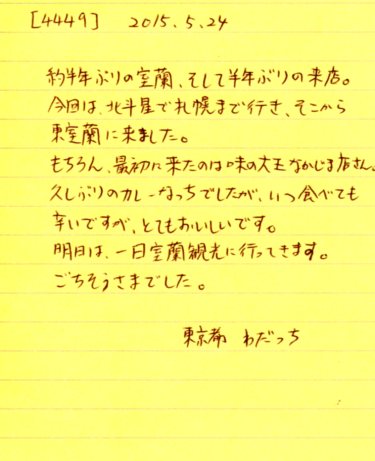 [4449] 2015.5.24
約半年ぶりの室蘭、そして半年ぶりの来店。
今回は、北斗星で札幌まで行き、そこから
東室蘭に来ました。
もちろん、最初に来たのは味の大王なかじま店さん。
久しぶりのカレーなっちでしたが、いつ食べても
辛いですが、とてもおいしいです。
明日は、一日室蘭観光に行ってきます。
ごちそうさまでした。
東京都 わだっち